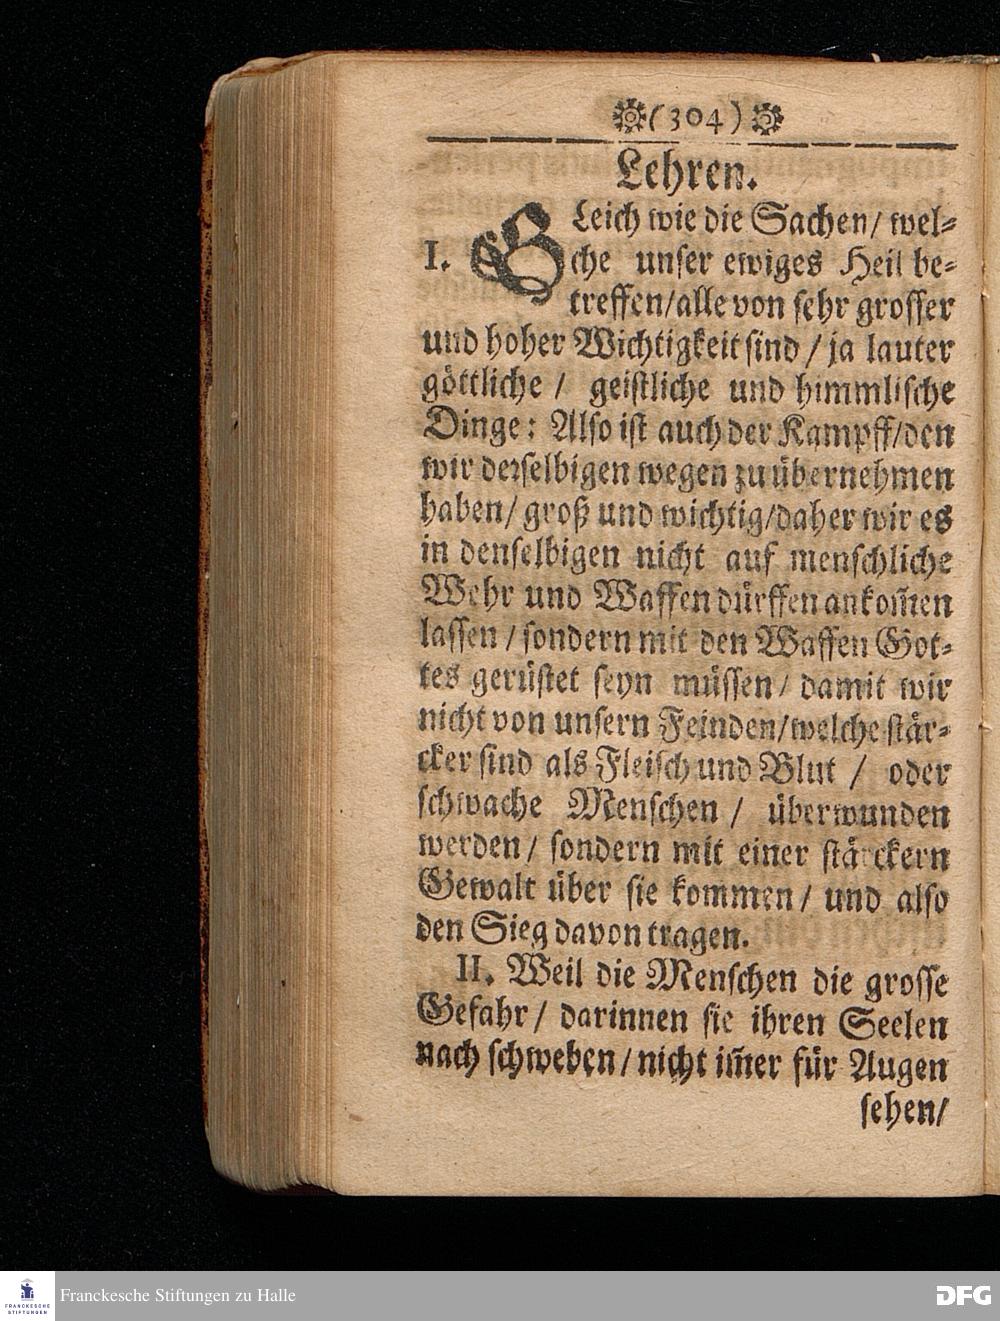 (304)
Lehren.
I. GLeich wie die Sachen/ wel-
che unser ewiges Heil be-
treffen/alle von sehr grosser
und hoher Wichtigkeit sind / ja lauter
göttliche / geistliche und himmlische
Dinge: Also ist auch der Kampff/den
wir derselbigen wegen zu übernehmen
haben/ groß und wichtig/daher wir es
in denselbigen nicht auf menschliche
Wehr und Waffen dürffen ankom̃en
lassen / sondern mit den Waffen Got-
tes gerüstet seyn müssen/ damit wir
nicht von unsern Feinden/welche stär-
cker sind als Fleisch und Blut / oder
schwache Menschen / überwunden
werden/ sondern mit einer stärckern
Gewalt über sie kommen/ und also
den Sieg davon tragen.
II. Weil die Menschen die grosse
Gefahr/ darinnen sie ihren Seelen
nach schweben/nicht im̃er für Augen
sehen/
FRANCKESCHE
STIFTUNGEN
Franckesche Stiftungen zu Halle
DFG